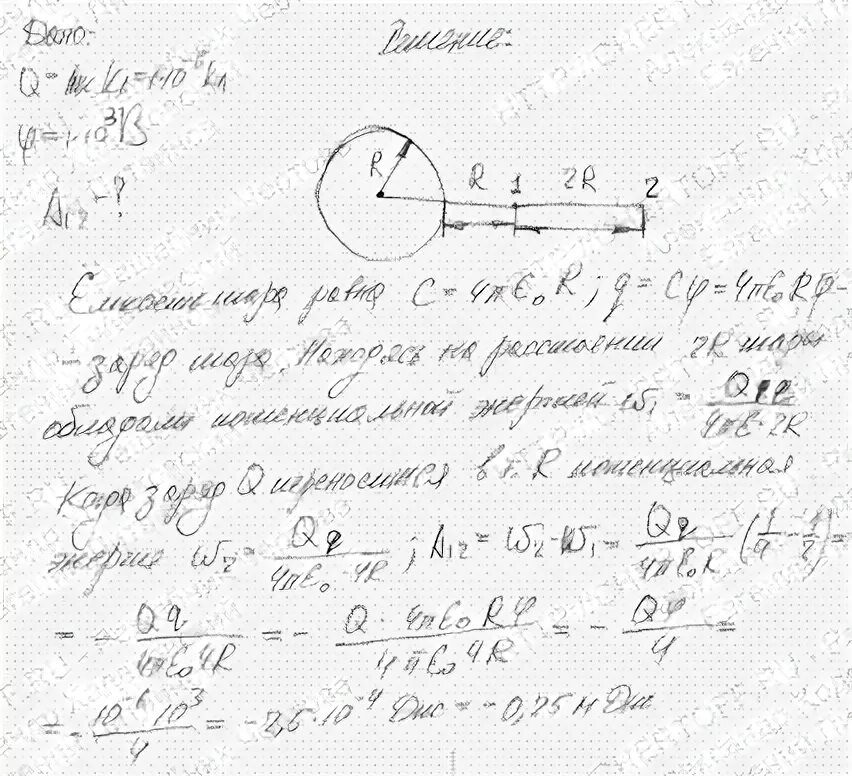 Дано:
Решение:
Q = 1мк Кл = 1·10⁻⁶ Кл
φ = 1·10³ В
A₁₂ - ?
R R 1 2R 2
Емкость шара равна C = 4πε₀R; q = Cφ = 4πε₀Rφ -
- заряд шара. Находясь на расстоянии 2R шары
обладают потенциальной энергией W₁ = Qq / 4πε·2R
Когда заряд Q переносится в т. R потенциальная
энергия W₂ = Qq / 4πε₀·4R ; A₁₂ = W₂ - W₁ = Qq / 4πε₀R (1/4 - 1/2) =
= - Qq / 4πε₀4R = - Q·4πε₀Rφ / 4πε₀4R = - Qφ / 4 =
= - 10⁻⁶·10³ / 4 = -2,5·10⁻⁴ Дж = -0,25 мДж